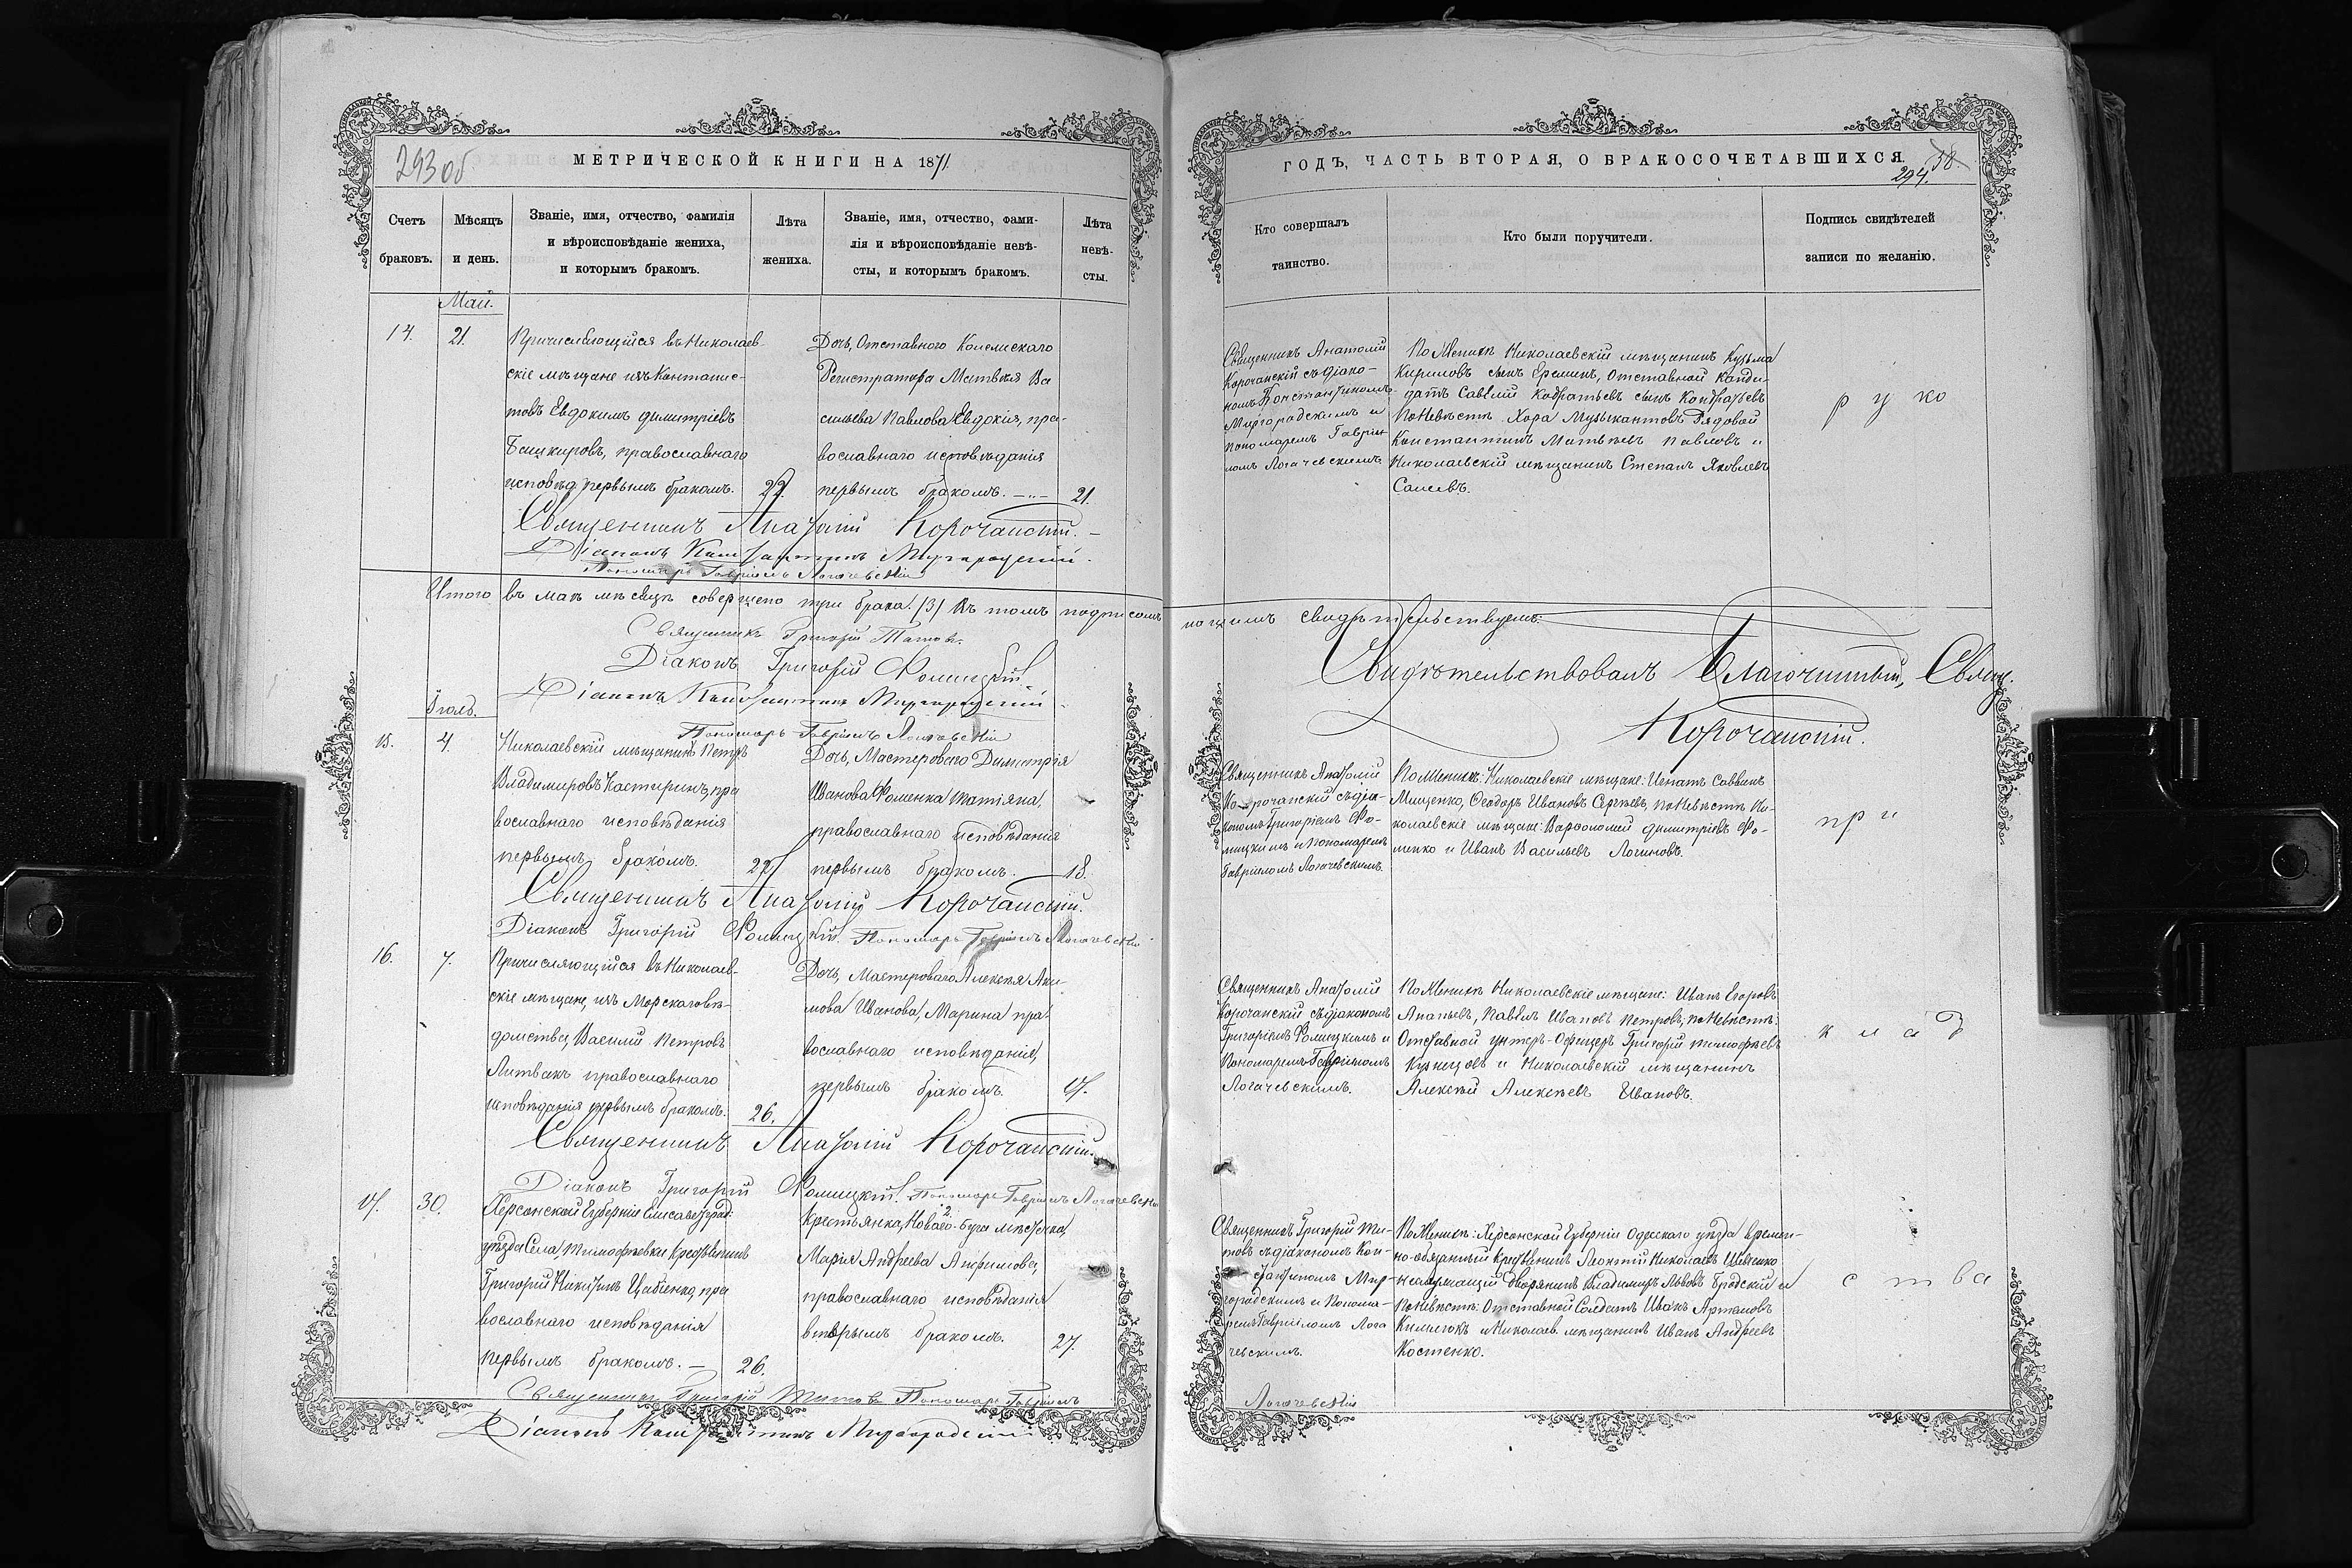 293 об
МЕТРИЧЕСКОЙ КНИГИ НА 1871
Счетъ
браковъ.
Мѣсяцъ
и день.
Званіе, имя, отчество, фамилія
и вѣроисповѣданіе жениха,
и которымъ бракомъ.
Лѣта
жениха.
Званіе, имя, отчество, фами-
лія и вѣроисповѣданіе невѣ-
сты, и которымъ бракомъ.
Лѣта
невѣ-
сты.
Май.
14.
21.
Причисляющійся въ Николаев-
скіе мѣщане изъ Кантонис-
товъ Евдокимъ Димитріевъ
Башкировъ, православнаго
исповѣд. первымъ бракомъ.
22.
Дочь, Отставного Колежскаго
Регистратора Матвѣя Ва
сильева Павлова Евдокія, пра-
вославнаго исповѣданія
первымъ бракомъ.
21.
Священникъ Анатолій Корочанскій.
Діаконъ Константинъ Миргородскій.
Пономарь Гавріилъ Логачевскій
Итого въ маѣ мѣсяцѣ совершено три брака (3) Въ томъ подписомъ
Священникъ Григорій Титовъ.
Діаконъ Григорій Фомицкій
Діаконъ Константинъ Миргородскій
Пономарь Гавріилъ Логачевскій
Іюль.
15.
4.
Николаевскій мѣщанинъ Петръ
Владимировъ Кастиринъ, пра
вославнаго исповѣданія
первымъ бракомъ.
22
Дочь, Мастерового Димитрія
Иванова Фоменка Татіяна,
православнаго исповѣданія
первымъ бракомъ.
18.
Священникъ Анатолій Корочанскій.
Діаконъ Григорій Фомицкій. Пономарь Гавріилъ Логачевскій
16.
7.
Причисляющійся въ Николаев-
скіе мѣщане, изъ Морскаго вѣ-
домства, Василій Петровъ
Литвакъ православнаго
исповѣданія первымъ бракомъ.
26.
Дочь, Мастерового Алексѣя Аки-
мова Иванова, Марина пра-
вославнаго исповѣданія,
первымъ бракомъ.
17.
Священникъ Анатолій Корочанскій.
Діаконъ Григорій Фомицкій. Пономарь Гавріилъ Логачевскій
17.
30.
Херсонской Губерніи Елисаветград:
уѣзда Села Тимофѣевки Крестьянинъ
Григорій Никитинъ Цабенко, пра
вославнаго исповѣданія
первымъ бракомъ.
26.
Крестьянка, Новаго-Буга мѣстечка,
Марія Андреева Анфимова,
православнаго исповѣданія
вторымъ бракомъ.
27.
Священникъ Григорій Титовъ Пономарь Гавріилъ
Діаконъ Константинъ Миргородскій
ГОДЪ, ЧАСТЬ ВТОРАЯ, О БРАКОСОЧЕТАВШИХСЯ.
58
294.
Кто совершалъ
таинство.
Кто были поручители.
Подпись свидѣтелей
записи по желанію.
Священникъ Анатолій
Корочанскій съ діако-
номъ Константиномъ
Миргородскимъ и
пономаремъ Гавріи-
ломъ Логачевскимъ.
По Женихѣ Николаевскій мѣщанинъ Кузьма
Кириловъ сынъ Ереминъ, Отставной Канди-
датъ Савелій Кондратьевъ сынъ Кондратьевъ
По Невѣстѣ Хора Музыкантовъ Рядовой
Константинъ Матвѣевъ Павловъ и
Николаевскій мѣщанинъ Степанъ Яковлевъ
р у ко
нашимъ свидѣтельствуемъ:
Свидѣтельствовалъ Благочинный, Свящ.
Корочанскій.
Священникъ Анатолій
Корочанскій съ діа-
кономъ Григоріемъ Фо-
мицкимъ и пономаремъ
Гавріиломъ Логачевскимъ.
По Женихѣ: Николаевскіе мѣщане: Игнатъ Саввинъ
Мищенко, Ѳеодоръ Ивановъ Сергѣевъ, по Невѣстѣ Ни-
колаевскіе мѣщане: Варѳоломей Димитріевъ Фо-
менко и Иванъ Васильевъ Логиновъ.
пр и
Священникъ Анатолій
Корочанскій съ діакономъ
Григоріемъ Фомицкимъ и
Пономаремъ Гавріиломъ
Логачевскимъ.
По Женихѣ Николаевскіе мѣщане: Иванъ Егоровъ
Ананьевъ, Павелъ Ивановъ Петровъ, по Невѣстѣ:
Отставной унтеръ-Офицеръ Григорій Тимофѣевъ
Кузнецовъ и Николаевскій мѣщанинъ
Алексѣй Алексѣевъ Ивановъ.
к л а д
Священникъ Григорій Ти-
товъ съ діакономъ Кон-
стантиномъ Мир-
городскимъ и Понома-
ремъ Гавріиломъ Лога
чевскимъ.
По Женихѣ: Херсонской Губерніи Одесскаго уѣзда Времен-
но-обязанный Крестьянинъ Леонтій Николаевъ Шевченко
и служащій Дворянинъ Владимиръ Львовъ Бродскій и
по Невѣстѣ: Отставной Солдатъ Иванъ Артамовъ
и Николаев. мѣщанинъ Иванъ Андреевъ
Костенко.
с т ва
Логачевскій